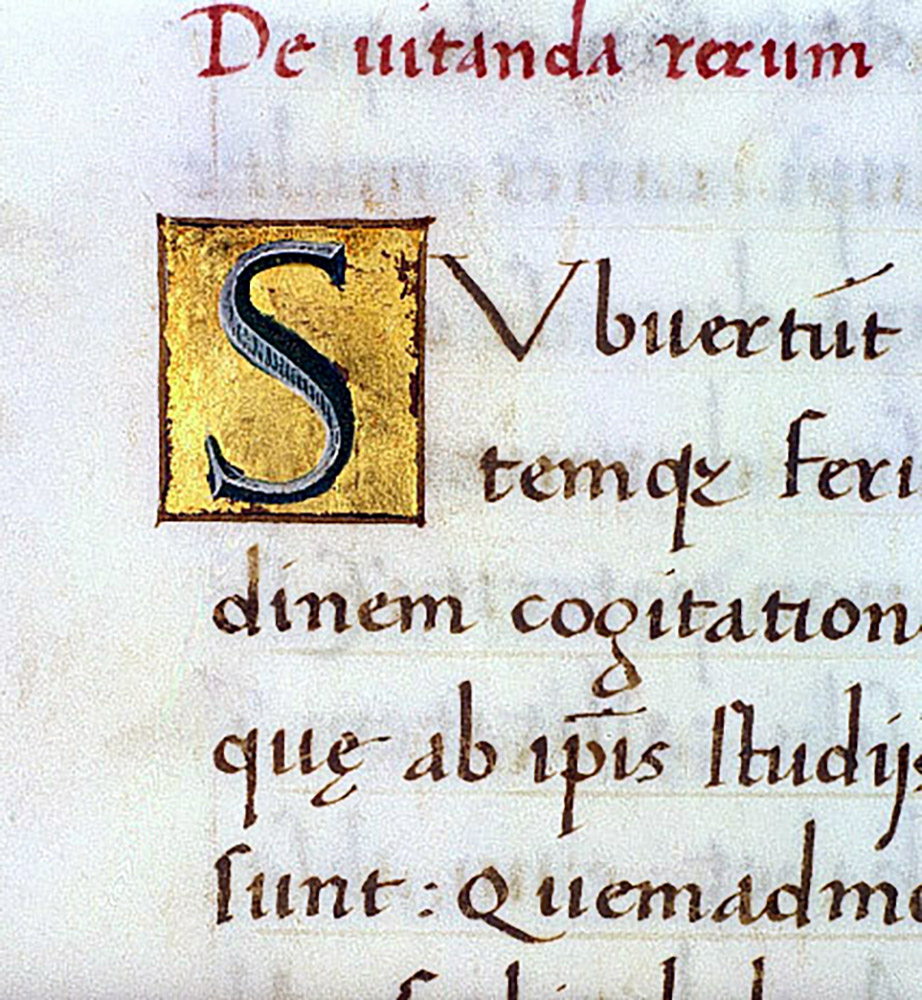 De uitanda rerum
SVbuertūt
temqꝫ feri
dinem cogitation
quę ab ip̄is studijs
sunt: Quemadmo